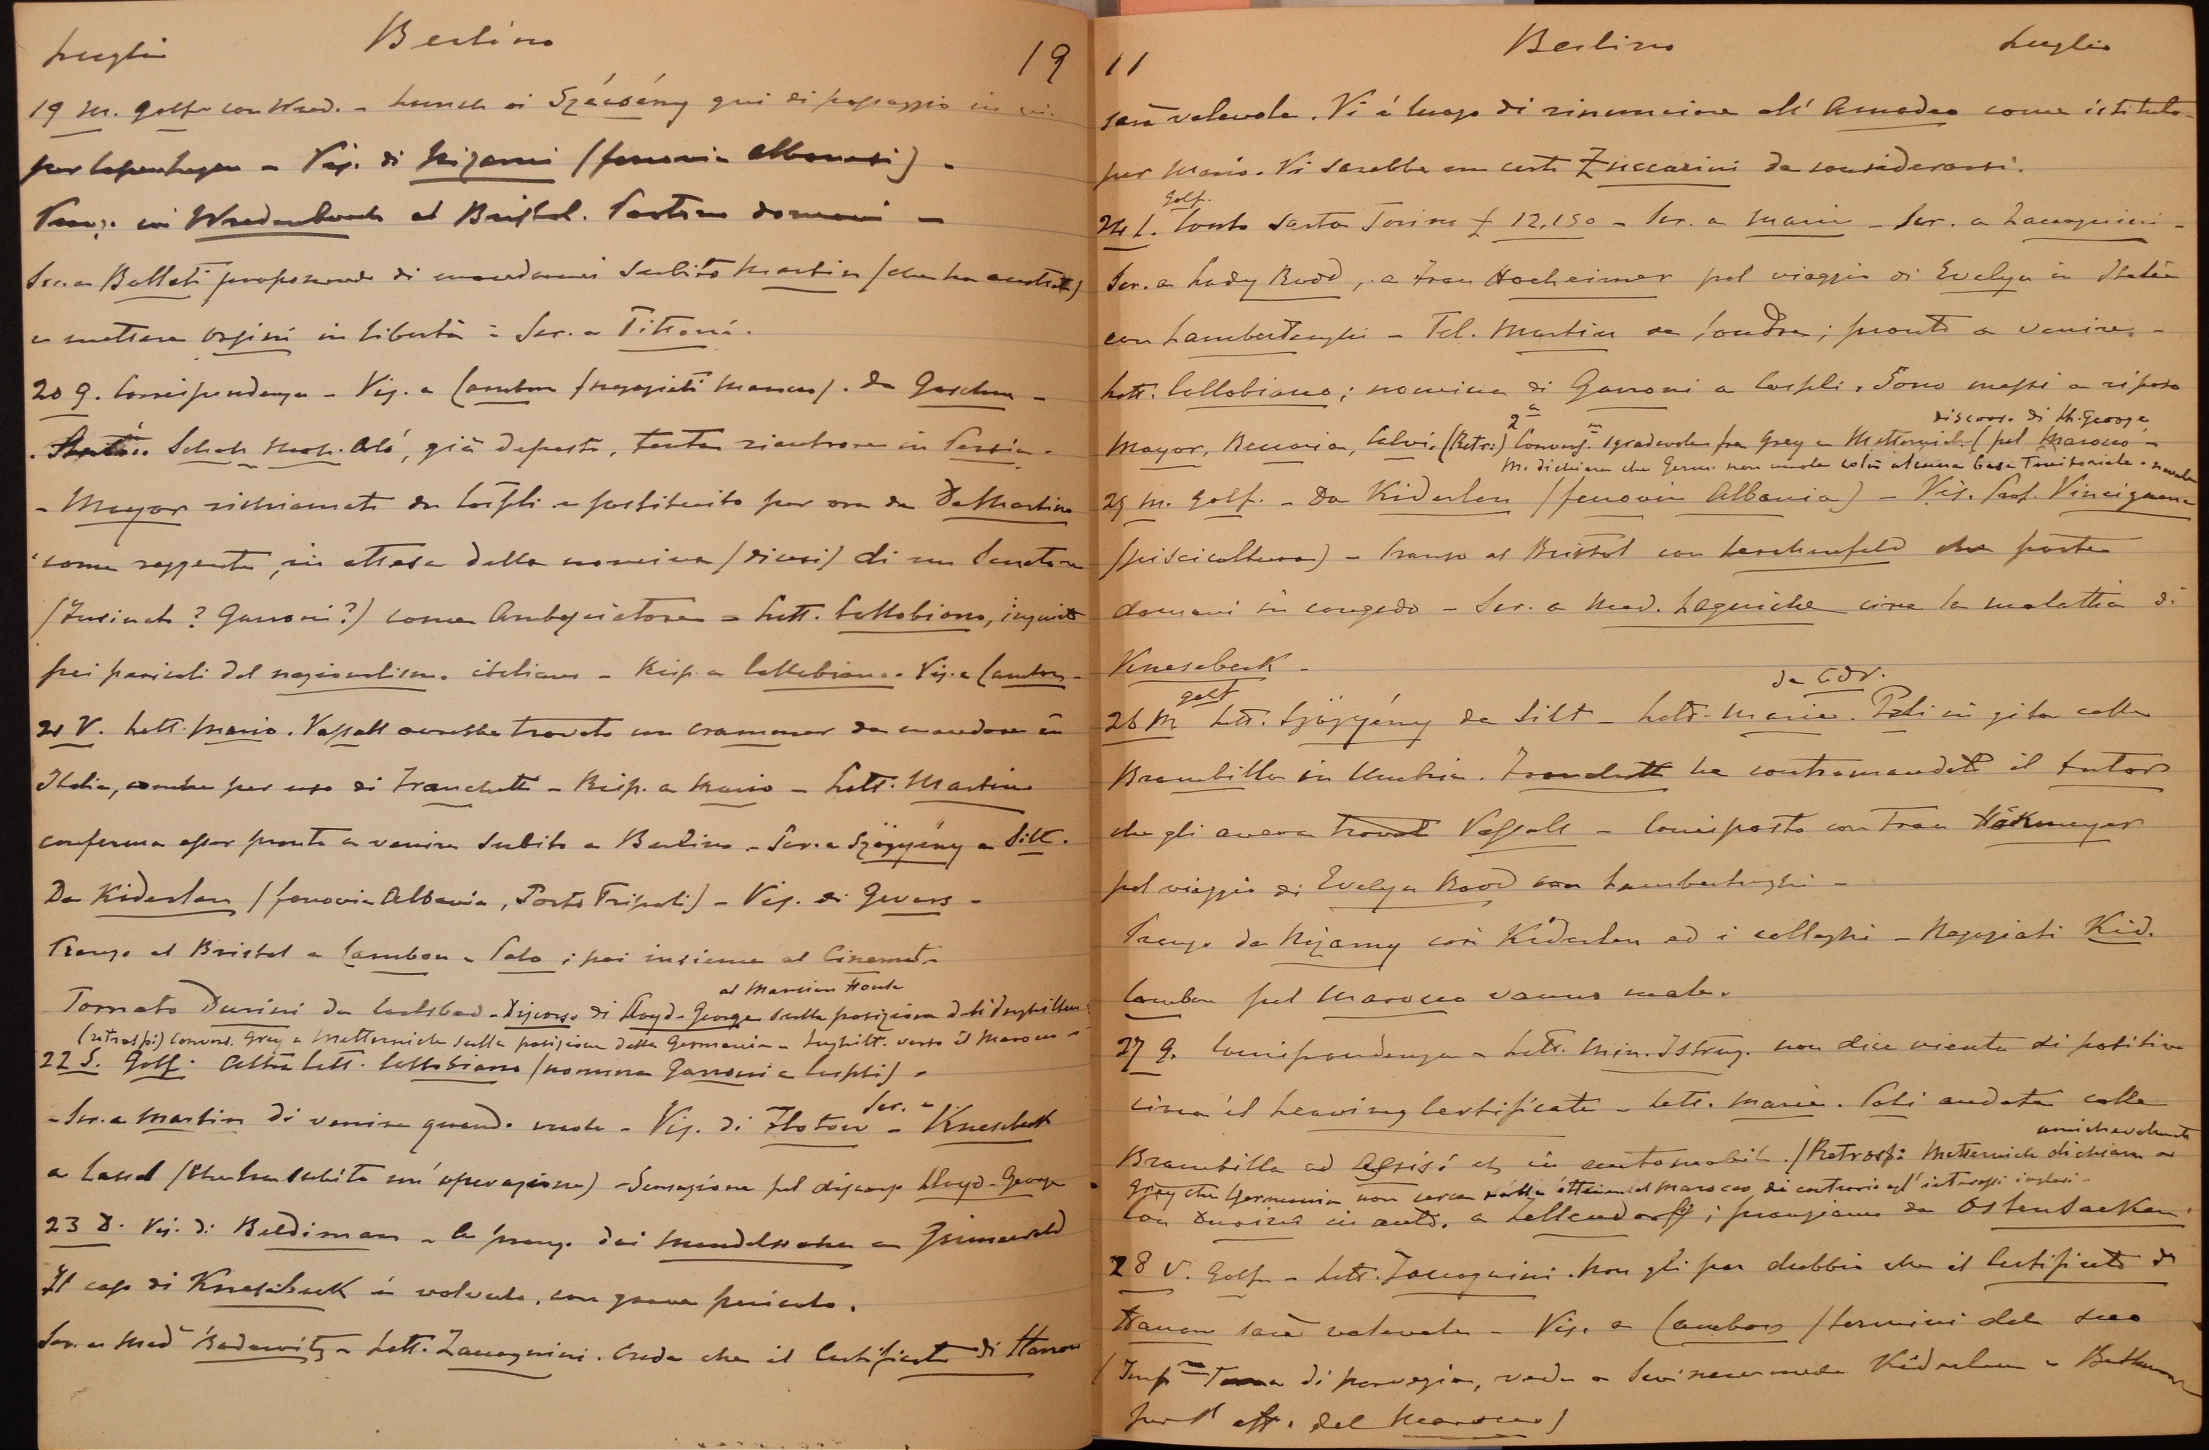 Luglio Berlino 19
19 M. golf con Wred. - Lunch ai Szécsény qui di passaggio in
per Copenhagen - Vis. di Nizami (ferrovia Albanesi) -
Pranz. ai Wredenbruck al Bristol. Partono domani -
Scr. a Bollati proponendo di mandarmi subito Martin
e mettere Orsini in libertà - Scr. a Tittoni.
20 G. Corrispondenza - Vis. a Cambon (negoziati Marocco). Da Goschen -
Schah Moh. Alé, già deposto, tenta rientrare in Persia -
- Mayor richiamato da Cospli e sostituito per ora da DeMartino
come reggente, in attesa della nomina (dicesi) di un Senatore
(Garroni?) come Ambasciatore - Lett. Collobiano, inquieto
pei pericoli del nazionalismo italiano - Risp. a Collobiano. Vis. a Cambon -
21 V. Lett. Mario. Vassall avrebbe trovato un crammer da mandare in
Italia, anche per uso di Franchetti - Risp. a Mario - Lett. Martin
conferma esser pronto a venire subito a Berlino - Scr. a Szögyény a Silt.
Da Kiderlen (ferrovia Albania, Porto Tripoli) - Vis. di Gevers -
Pranzo al Bristol a Cambon e Polo; poi insieme al Cinemat.
al Mansion House
Tornato Durini da Carlsbad - Discorso di Lloyd-George sulla posizione dell'Inghilterra
(retrosp:) Convers. Grey e Metternich sulla posizione della Germania e Inghilt. verso il Marocco -
22 S. Golf. Altra lett. Collobiano (nomina Garroni a Cospli) -
Scr. a
- Scr. a Martin di venire quando vuole - Vis. di Flotow - Knesebeck
a Cassel (che ha subito un'operazione) - Sensazione pel discorso Lloyd-George
23 D. Vis. di Beldiman - A pranzo dai Mendelssohn a Grünewald
Il caso di Knesebeck è volvulo, con grave pericolo.
Scr. a Med Radowitz - Lett. Zaccagnini. Crede che il Certificato di Harrow
11 Berlino Luglio
sarà valevole. Vi è luogo di rinunciare all'Amedeo come istituto
per Mario. Vi sarebbe un certo Zuccarini da considerarsi.
golf.
24 L. Conto sarto Torino £ 12,150 - Scr. a Mario - Scr. a Zaccagnini -
Scr. a Lady Rodd, a Frau Hocheimer pel viaggio di Evelyn in Italia
con Lambertenghi - Tel. Martin da Londra; pronto a venire -
Lett. Collobiano; nomina di Garroni a Cospli. Sono messi a riposo
discorso di Ll. George,
Mayor, Beccaria, Calvi. (Retr:) 2ª Convers.ne sgradevole fra Grey e Metternich (pel Marocco -
M. dichiara che Germ. non vuole colà alcuna base territoriale o navale
25 M. golf. - Da Kiderlen (ferrovia Albania) - Vis. Prof. Vinciguerra
(piscicoltura) - Pranzo al Bristol con Lerchenfeld che parte
domani in congedo - Scr. a Med. circa la malattia di
Knesebeck -
golf da Cdv.
26 M Lett. Szögyény da Silt - Lett. Maria. Poli in gita colla
Brambilla in Umbria. Franchetti ha contromandato il tutor
che gli aveva trovato Vassall - Corrisposto con Frau
pel viaggio di Evelyn Rodd con Lambertenghi -
Pranzo da Nizamy con Kiderlen ed i colleghi - Negoziati Kid.
Cambon pel Marocco vanno male.
27 G. Corrispondenza - Lett. Min. Istruz. non dice niente di positivo
circa il Leaving Certificate - Lett. Maria. Poli andata colla
amichevolmente
Brambilla ad Assisi etc in automobile. (Retrosp: Metternich dichiara a
Grey che Germania non cerca nulla al Marocco di contrario agl'interessi inglesi -
Con Durini in auto. a; pranziamo da OstenSacken.
28 V. Golf - Lett. Zaccagnini. Non gli par dubbio che il Certificato di
Harrow sarà valevole - Vis. a Cambon (termini del suo
(Imp.re Torna di Norvegia, vede a Swinemunde Kiderlen e Bethmann
per l'aff. del Marocco)